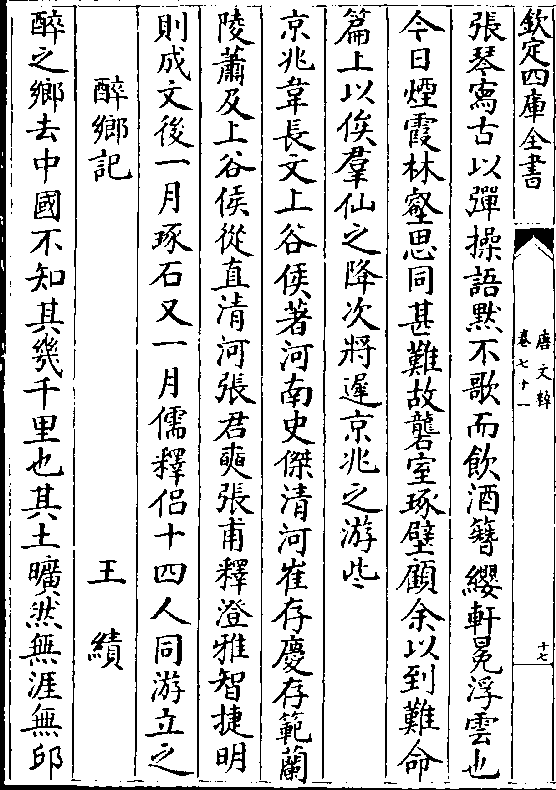 欽定四庫全書
唐文粹
卷七十一
十七
張琴寫古以彈操語黙不歌而飲酒簪纓軒冕浮雲也
今日煙霞林壑思同甚難故礱室琢壁顧余以到難命
篇上以俟羣仙之降次將遲京兆之游些
京兆韋長文上谷侯著河南史傑清河崔存慶存範蘭
陵蕭及上谷侯從直清河張君奭張甫釋澄雅智捷明
則成文後一月琢石又一月儒釋侣十四人同游立之
醉鄉記
王績
醉之鄉去中國不知其幾千里也其土曠然無涯無邱